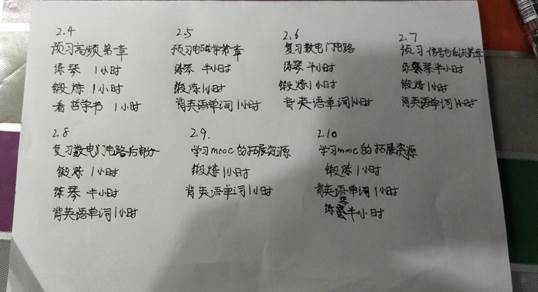 2.4
预习高频第一章
练琴 1小时
锻炼 1小时
看哲学书 1小时
2.5
预习电磁学第一章
练琴 半小时
锻炼1小时
背英语单词1小时
2.6
复习数电门电路
练琴 半小时
锻炼1小时
背英语单词1小时
2.7
预习信号与系统第一章
练琴半小时
锻炼1小时
背英语单词1小时
2.8
复习数电门电路后部分
锻炼1小时
练琴 半小时
背英语单词1小时
2.9.
学习mooc的拓展资源
锻炼1小时
背英语单词1小时
2.10
学习mooc的拓展资源
锻炼1小时
背英语单词1小时
练琴半小时